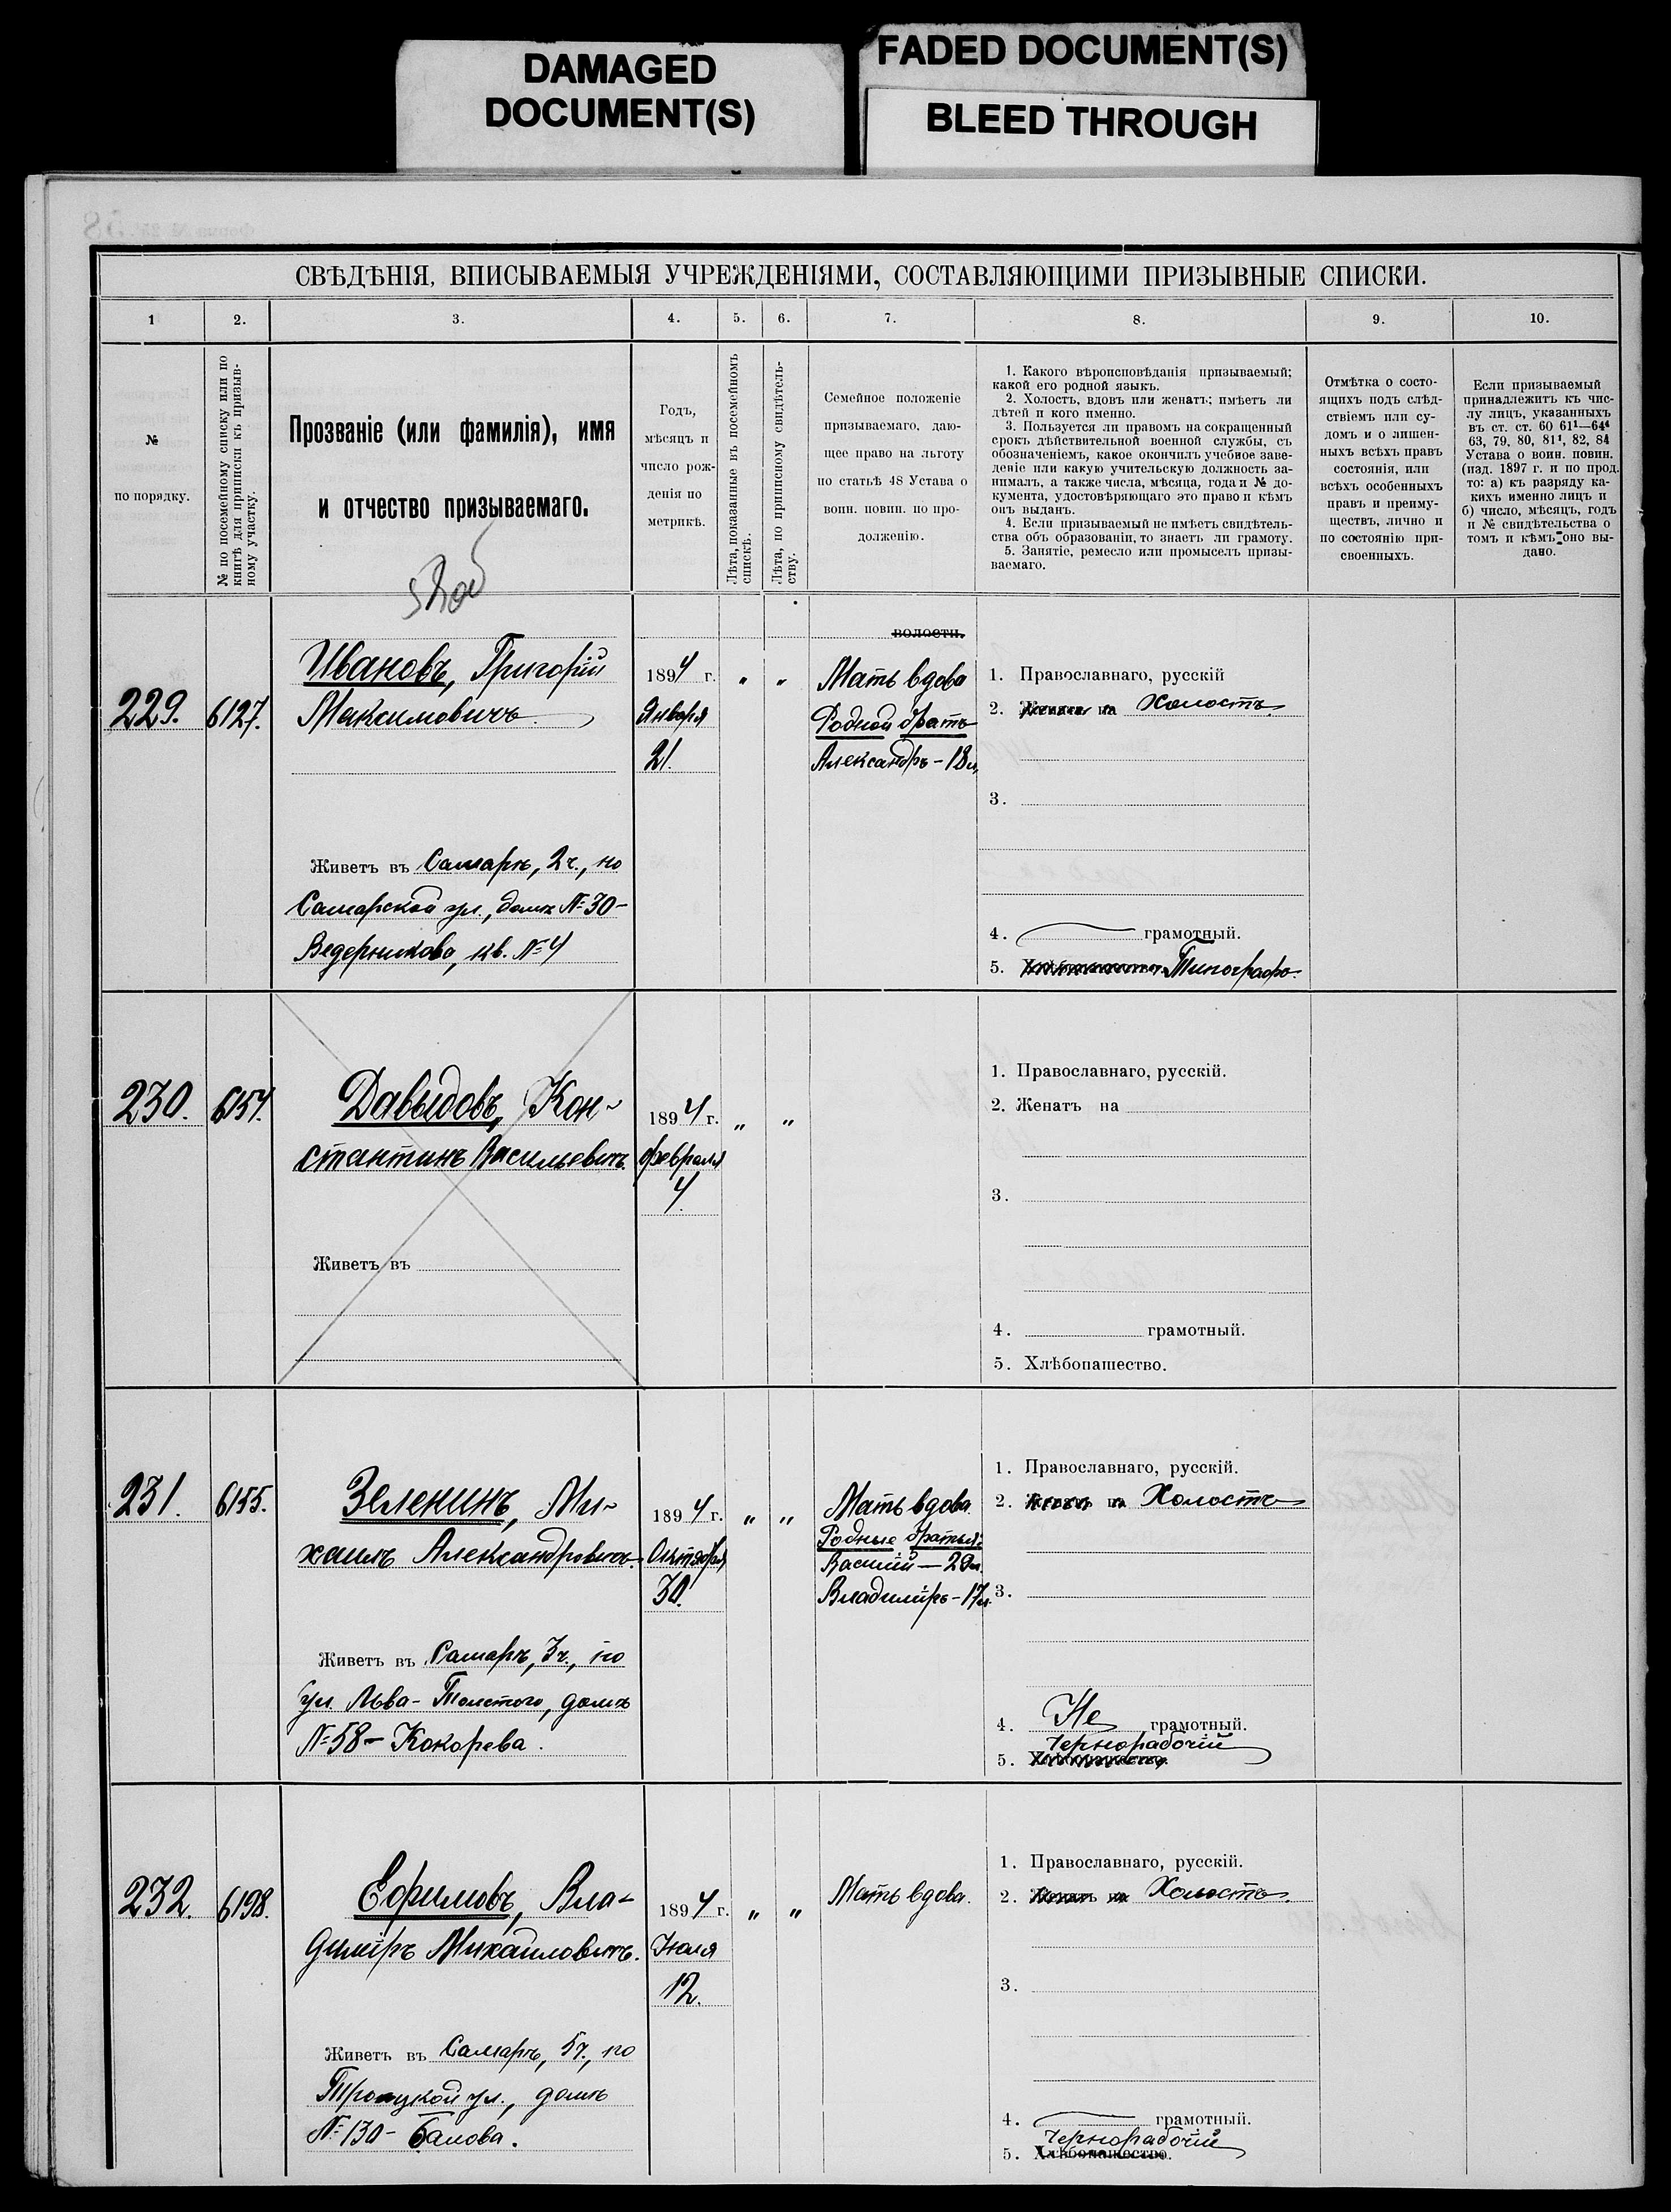 DAMAGED
DOCUMENT(S)
FADED DOCUMENT(S)
BLEED THROUGH
СВѢДѢНІЯ, ВПИСЫВАЕМЫЯ УЧРЕЖДЕНІЯМИ, СОСТАВЛЯЮЩИМИ ПРИЗЫВНЫЕ СПИСКИ.
1
2.
3.
4.
5.
6.
7.
8.
9.
10.
№
по порядку.
№ по посемейному списку или по
книгѣ для приписки къ призыв-
ному участку.
Прозваніе (или фамилія), имя
и отчество призываемаго.
Годъ,
мѣсяцъ и
число рож-
денія по
метрикѣ.
Лѣта, показанные въ посемейномъ
спискѣ.
Лѣта, по приписному свидѣтель-
ству.
Семейное положеніе
призываемаго, даю-
щее право на льготу
по статьѣ 48 Устава о
воин. повин. по про-
долженію.
1. Какого вѣроисповѣданія призываемый;
какой его родной языкъ.
2. Холостъ, вдовъ или женатъ; имѣетъ ли
дѣтей и кого именно.
3. Пользуется ли правомъ на сокращенный
срокъ дѣйствительной военной службы, съ
обозначеніемъ, какое окончилъ учебное заве-
деніе или какую учительскую должность за-
нималъ, а также числа, мѣсяца, года и № до-
кумента, удостовѣряющаго это право и кѣмъ
онъ выданъ.
4. Если призываемый не имѣетъ свидѣтель-
ства объ образованіи, то знаетъ ли грамоту.
5. Занятіе, ремесло или промыселъ призы-
ваемаго.
Отмѣтка о состо-
ящихъ подъ слѣд-
ствіемъ или су-
домъ и о лишен-
ныхъ всѣхъ правъ
состоянія, или
всѣхъ особенныхъ
правъ и преиму-
ществъ, лично и
по состоянію при-
своенныхъ.
Если призываемый
принадлежитъ къ чис-
лу лицъ, указанныхъ
въ ст. ст. 60 61¹—64⁴
63, 79, 80, 81¹, 82, 84
Устава о воин. повин.
(изд. 1897 г. и по прод.
то: а) къ разряду ка-
кихъ именно лицъ и
б) число, мѣсяцъ, годъ
и № свидѣтельства о
томъ и кѣмъ оно вы-
дано.
229.
6127.
Ивановъ, Григорій
Максимовичъ.
Живетъ въ Самарѣ, 2 ч., по
Самарской ул., домъ № 30-
Ведерникова, кв. № 4
1894 г.
Января
21.
" "
волости.
Мать вдова
Родной братъ
Александръ - 18 л.
1. Православнаго, русскій
2. Женатъ на Холостъ.
3.
4. грамотный.
5. Хлѣбопашество. Типографъ.
230.
6154.
Давыдовъ, Кон-
стантинъ Васильевичъ.
Живетъ въ
1894 г.
Февраля
4.
" "
1. Православнаго, русскій.
2. Женатъ на
3.
4. грамотный.
5. Хлѣбопашество.
231.
6155.
Зеленинъ, Ми-
хаилъ Александровичъ.
Живетъ въ Самарѣ, 3 ч., по
ул. Льва-Толстого, домъ
№ 58 - Кокорева.
1894 г.
Октября
30.
" "
Мать вдова.
Родные братья:
Василій — 20 л.
Владиміръ - 17 л.
1. Православнаго, русскій.
2. Женатъ на Холостъ
3.
4. Не грамотный.
Чернорабочій
5. Хлѣбопашество.
232.
6198.
Ефимовъ, Вла-
диміръ Михайловичъ.
Живетъ въ Самарѣ, 5 ч., по
Троицкой ул., домъ
№ 130 - Балова.
1894 г.
Іюля
12.
" "
Мать вдова.
1. Православнаго, русскій.
2. Женатъ на Холостъ.
3.
4. грамотный.
Чернорабочій
5. Хлѣбопашество.